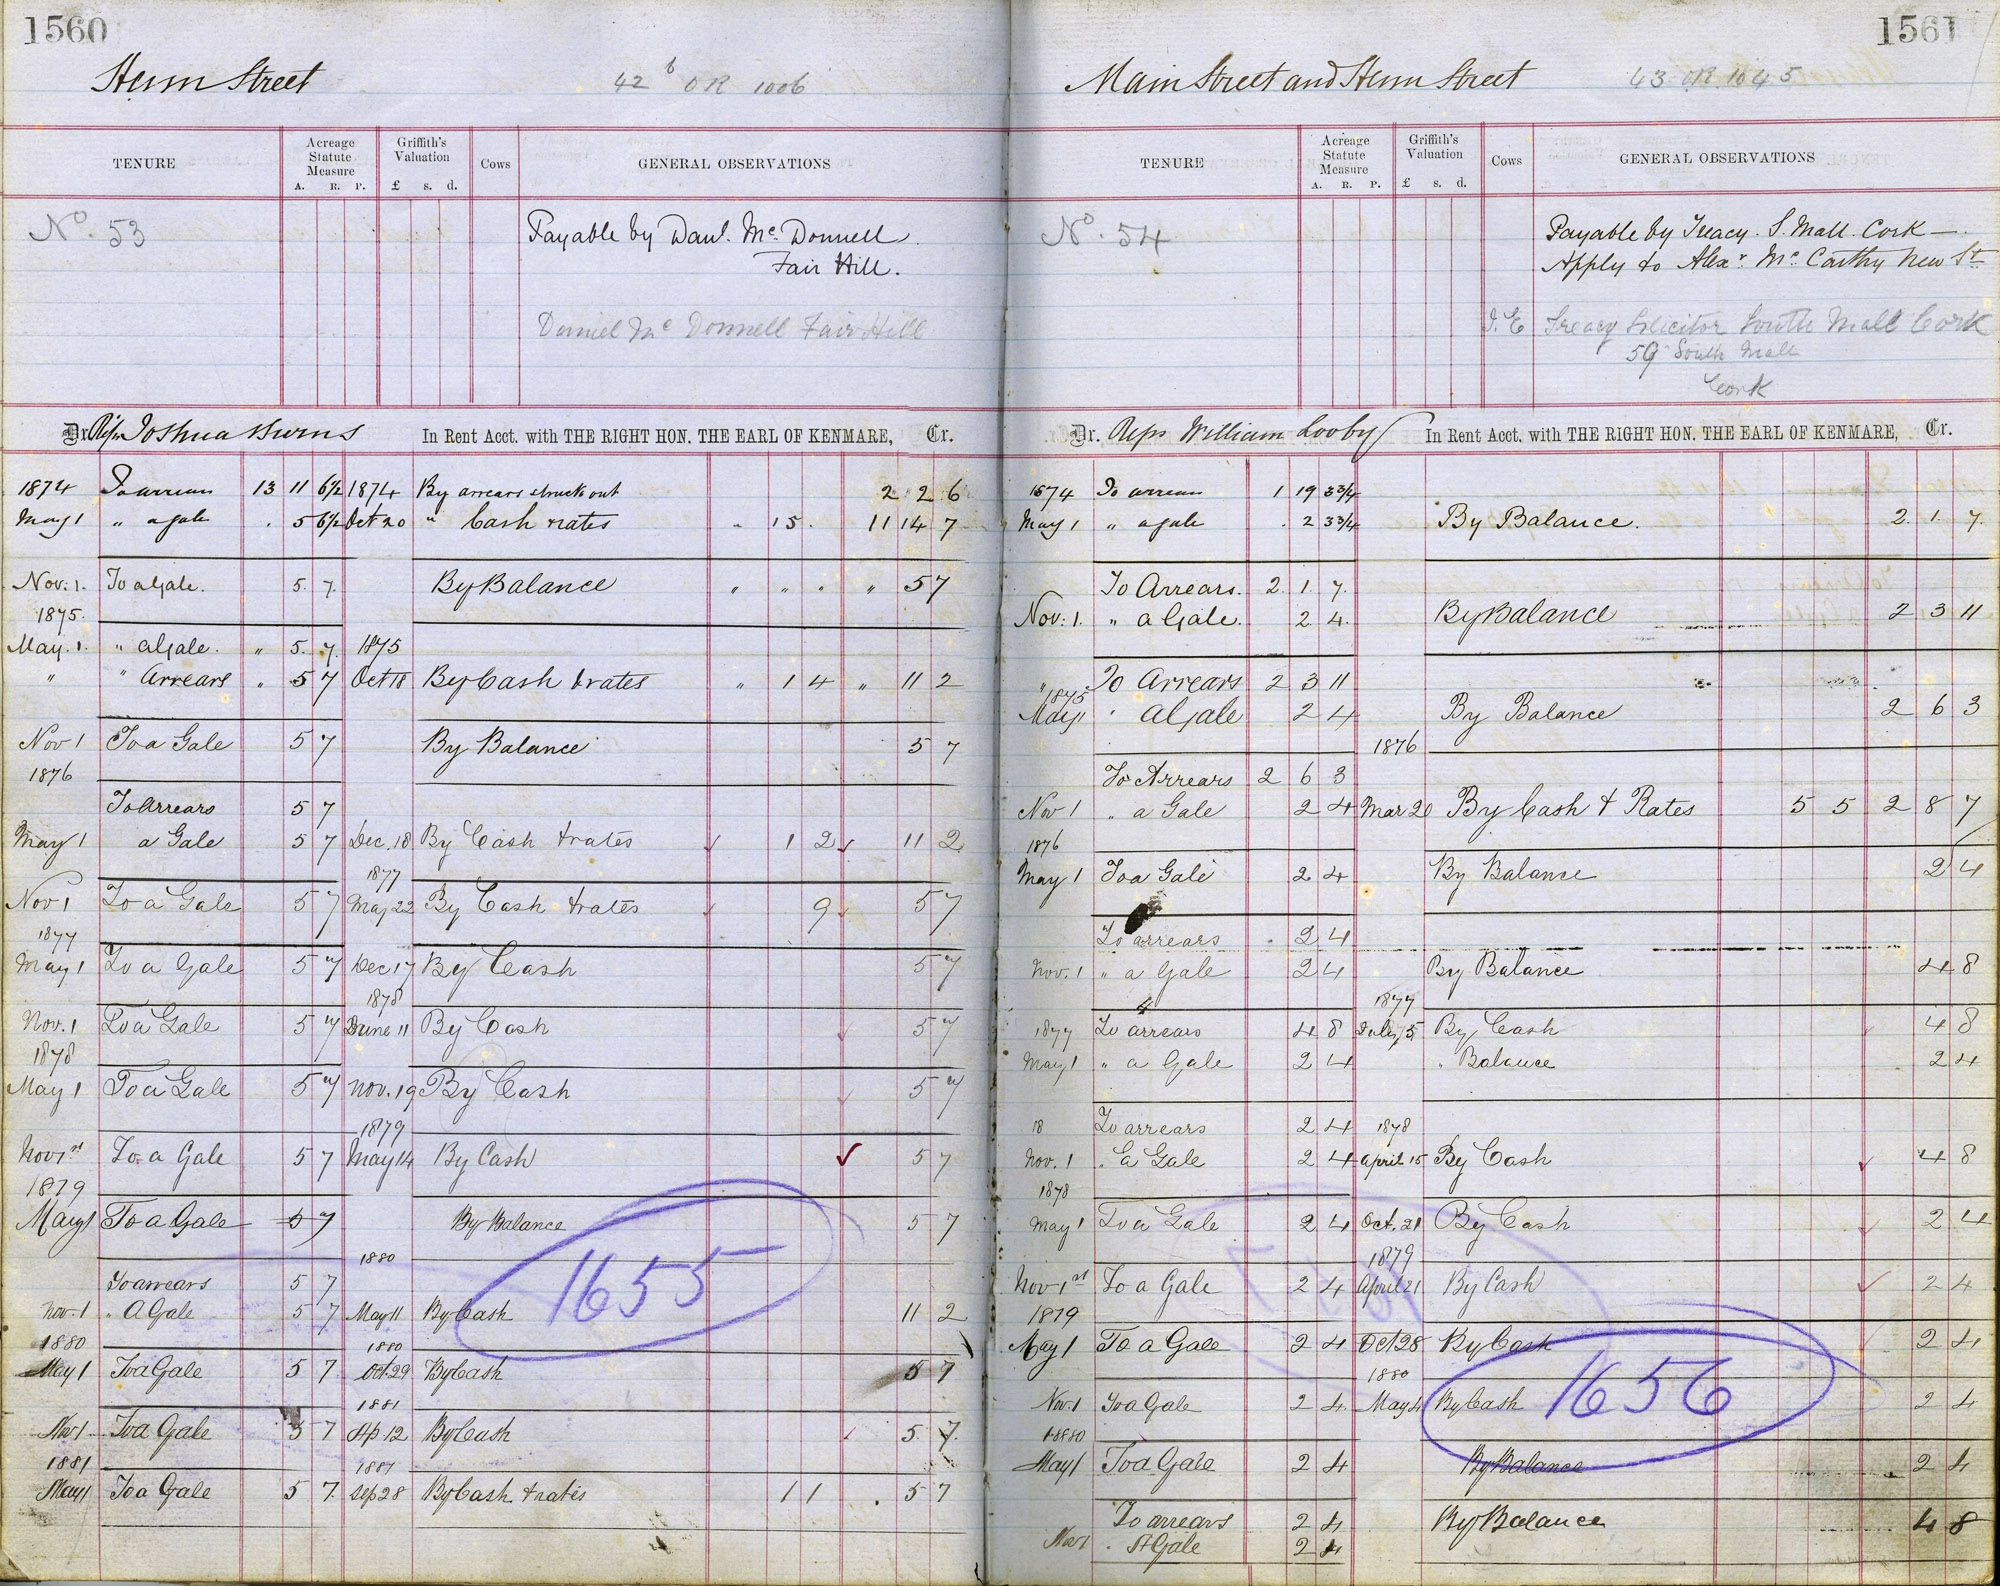 1560
Henn Street 42 b OR 1006
TENURE Acreage Statute Measure A. R. P. Griffith's Valuation £ s. d. Cows GENERAL OBSERVATIONS
No. 53 Payable by Danl. Mc. Donnell
Fair Hill.
Daniel Mc Donnell Fair Hill
Dr. Reps Joshua Burns In Rent Acct. with THE RIGHT HON. THE EARL OF KENMARE, Cr.
1874 To arrears 13 11 6½ 1874 By arrears struck out 2 2 6
May 1 " a gale . 5 6½ Oct 20 " Cash rates 15 . 11 14 7
Nov. 1. To a Gale. 5. 7. By Balance " " " " 5 7
1875.
May. 1. " a Gale. " 5. 7. 1875
" " Arrears " 5 7 Oct 18 By Cash & rates " 1 4 " 11 2
Nov 1 To a Gale 5 7 By Balance 5 7
1876
To Arrears 5 7
May 1 a Gale 5 7 Dec. 18 By Cash & rates 1 2 11 2
1877
Nov 1 To a Gale 5 7 May 22 By Cash & rates 9 5 7
1877
May 1 To a Gale 5 7 Dec 17 By Cash 5 7
1878
Nov. 1 To a Gale 5 7 June 11 By Cash 5 7
1878
May 1 To a Gale 5 7 Nov. 19 By Cash 5 7
1879
Nov 1st To a Gale 5 7 May 14 By Cash 5 7
1879
May 1 To a Gale 5 7 By Balance 5 7
1880
1655
To arrears 5 7
Nov. 1 " A Gale 5 7 May 11 By Cash 11 2
1880 1880
May 1 To a Gale 5 7 Oct. 29 By Cash 5 7
1881
Nov 1 To a Gale 5 7 Ap 12 By Cash 5 7.
1881 1881
May 1 To a Gale 5 7. Sep 28 By Cash & rates 1 1 . 5 7
1561
Main Street and Henn Street 43 OR. 1045
TENURE Acreage Statute Measure A. R. P. Griffith's Valuation £ s. d. Cows GENERAL OBSERVATIONS
No. 54 Payable by Treacy. S. Mall. Cork —.
Apply to Alexr. Mc Carthy New St
I. E Treacy Solicitor South Mall Cork
59 South Mall
Cork
Dr. Reps William Looby In Rent Acct. with THE RIGHT HON. THE EARL OF KENMARE, Cr.
1874 To arrears 1 19 3¾
May 1 " a gale . 2 3¾ By Balance. 2. 1. 7.
To Arrears. 2. 1. 7.
Nov. 1. " a Gale. 2. 4. By Balance 2 3 11
" To Arrears 2 3 11
1875
May 1 " a Gale 2 4 By Balance 2 6 3
1876
To Arrears 2 6 3
Nov 1 " a Gale 2 4 Mar 20 By Cash & Rates 5 5 2 8 7
1876
May 1 To a Gale 2 4 By Balance 2 4
To arrears . 2 4
Nov. 1 " a Gale 2 4 By Balance 4 8
4 1877
1877 To arrears 4 8 July 5 By Cash 4 8
May 1 " a Gale 2 4 " Balance 2 4
18 To arrears 2 4 1878
Nov. 1 . a Gale 2 4 April 15 By Cash 4 8
1878
May 1 To a Gale 2 4 Oct. 21 By Cash 2 4
1879
Nov 1st To a Gale 2 4 April 21 By Cash 2 4
1879
May 1 To a Gale 2 4 Oct 28 By Cash 2 4
1880
Nov. 1 To a Gale 2 4. May 4 By Cash 1656 2 4
1880
May 1 To a Gale 2 4 By Balance 2 4
To arrears 2 4 By Balance 4 8
Nov 1 . A Gale 2 4